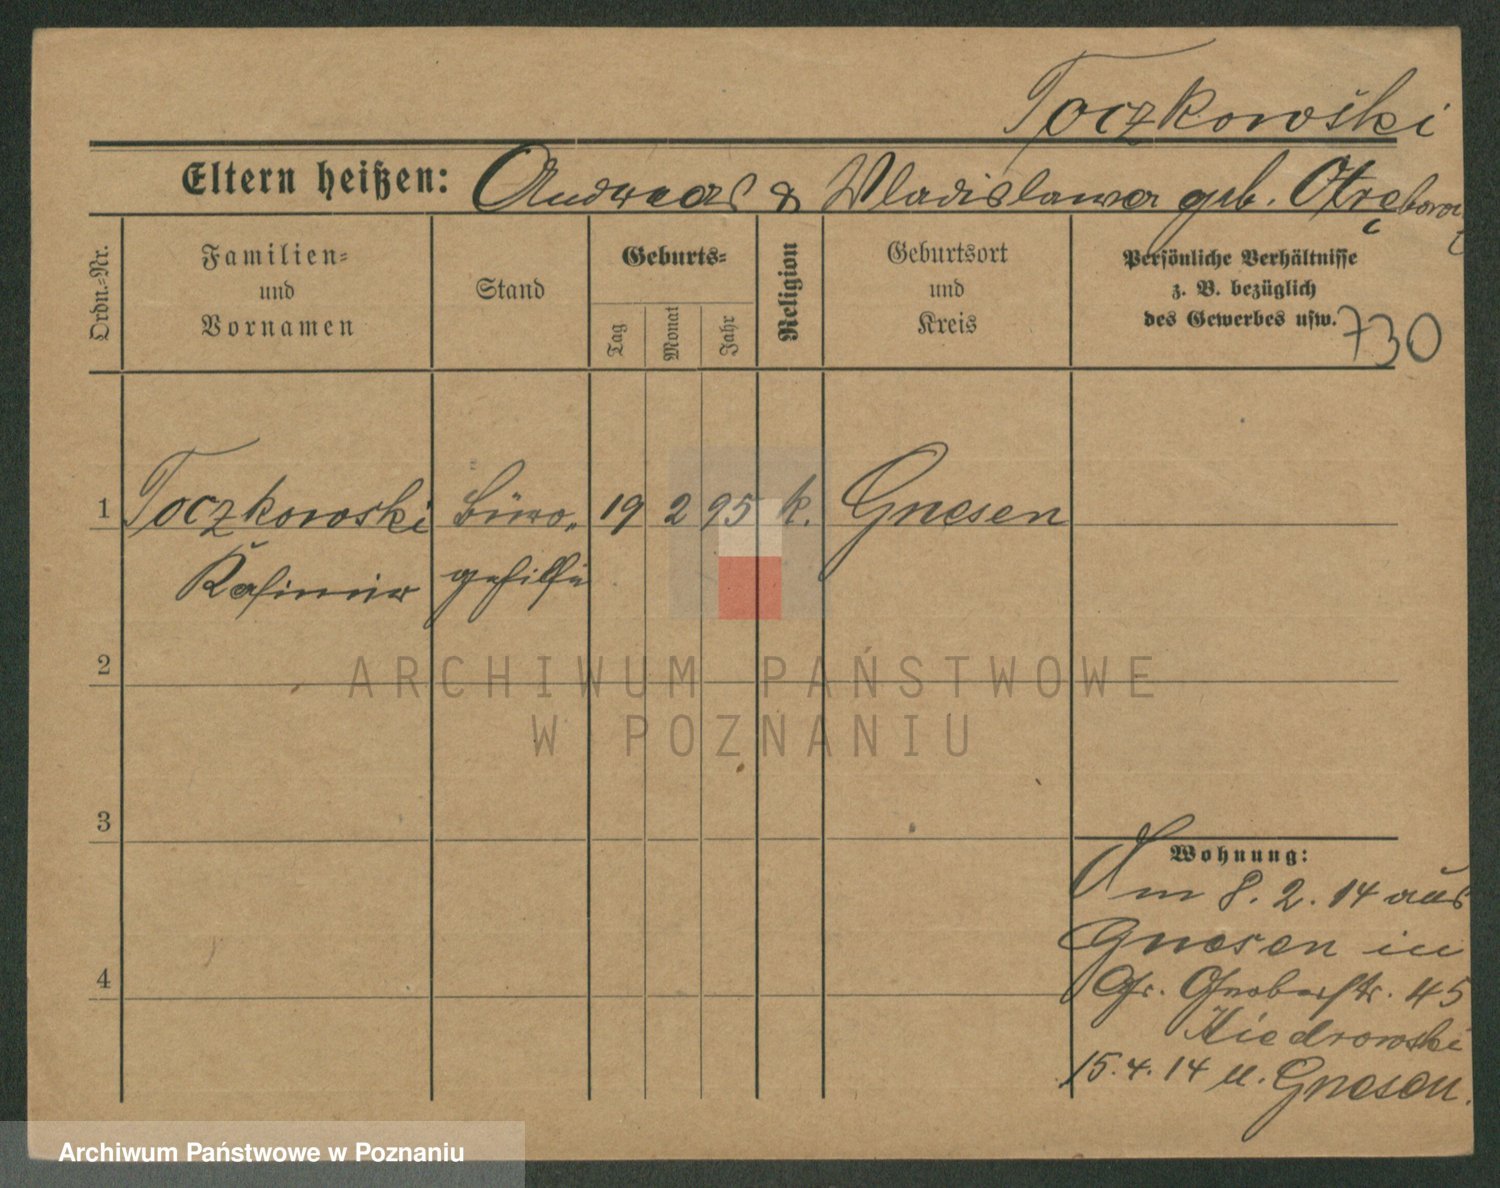 Toczkowski
Eltern heißen: Andreas & Wladislawa geb.
Ordn.-Nr.
Familien-
und
Vornamen
Stand
Geburts-
Tag
Monat
Jahr
Religion
Geburtsort
und
Kreis
Persönliche Verhältnisse
z. B. bezüglich
des Gewerbes usw.
730
1 Toczkowski Büro- 19 2 95 k. Gnesen
Kasimir gehilfe
2
3
4
Wohnung:
Am 8. 2. 14 aus
Gnesen in
Gr. 45
15. 4. 14 n. Gnesen.
ARCHIWUM PAŃSTWOWE
W POZNANIU
Archiwum Państwowe w Poznaniu